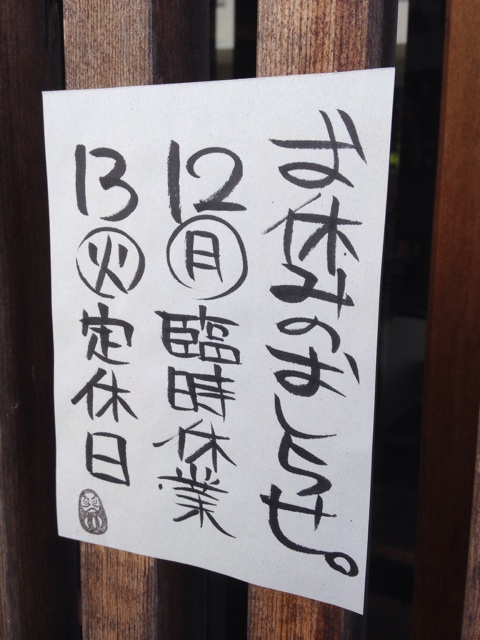 お休みのおしらせ。
12㊊臨時休業
13㊋定休日